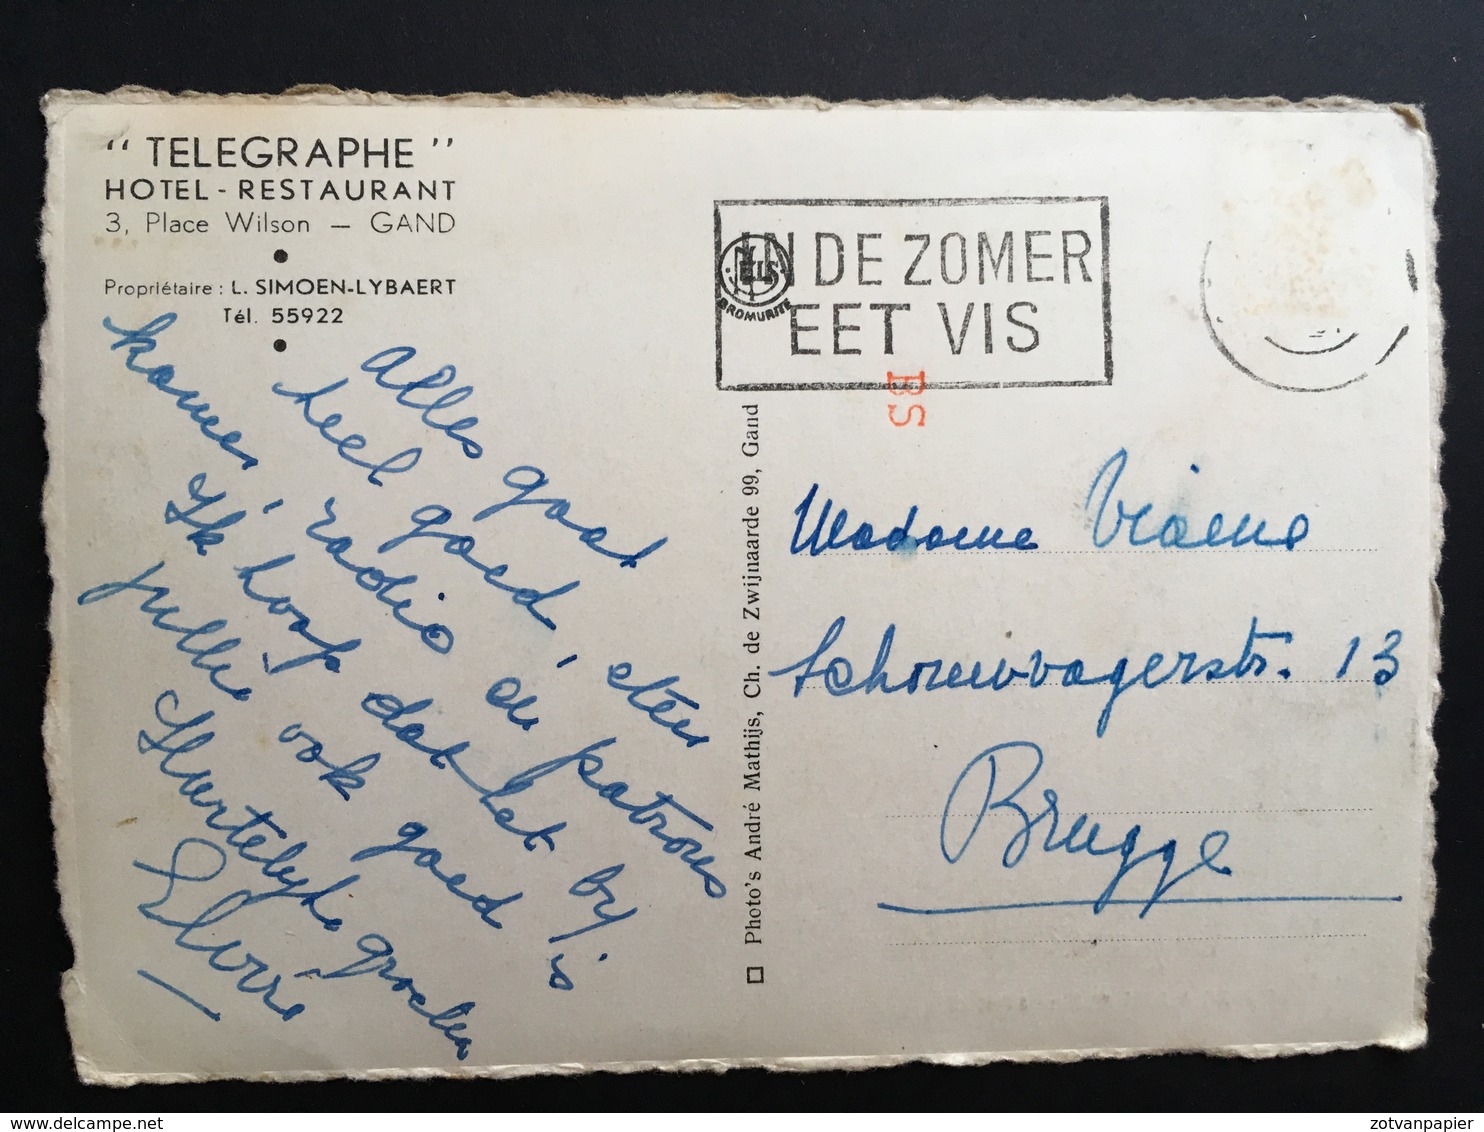 " TELEGRAPHE "
HOTEL - RESTAURANT
3, Place Wilson — GAND
Propriétaire : L. SIMOEN-LYBAERT
Tél. 55922
Alles gaat
heel goed, eten
kamer, radio en patrons
Ik hoop dat het by
jullie ook goed is
Hartelyke groeten
□ Photo's André Mathijs, Ch. de Zwijnaarde 99, Gand
IN DE ZOMER
EET VIS
BROMURITE
BS
Madame Viaene
Schouwvagerstr. 13
Brugge
zotvanpapier